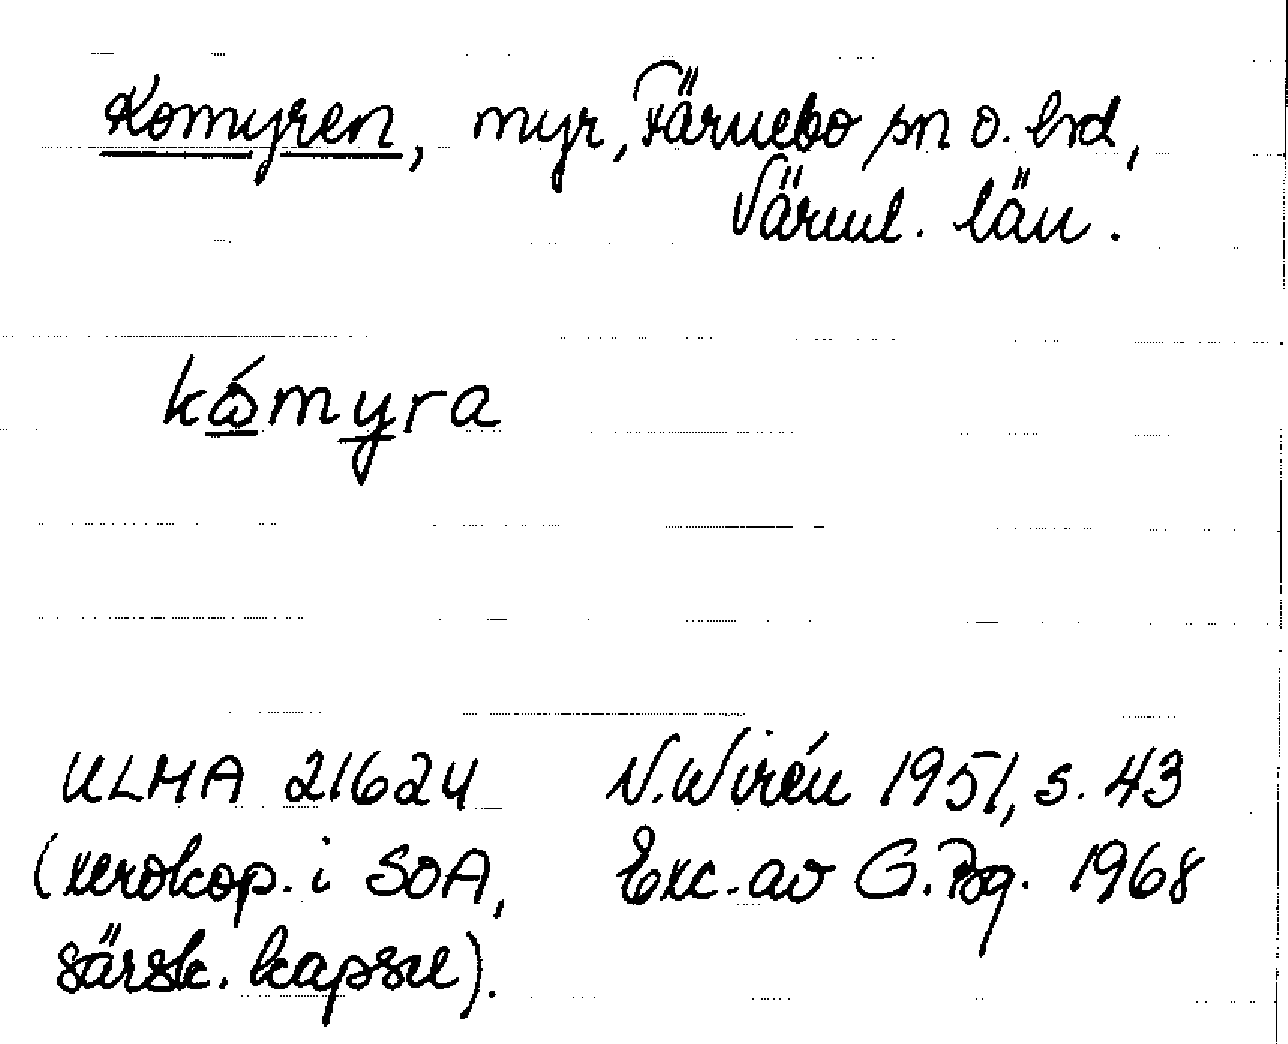 Komyren, myr, Färnebo sn o. hrd,
Värml. län.
kọ́myra
ULMA 21624
(xerokop. i SOA,
särsk. kapsel).
N. Wirén 1951, s. 43
Exc. av G. Bg. 1968